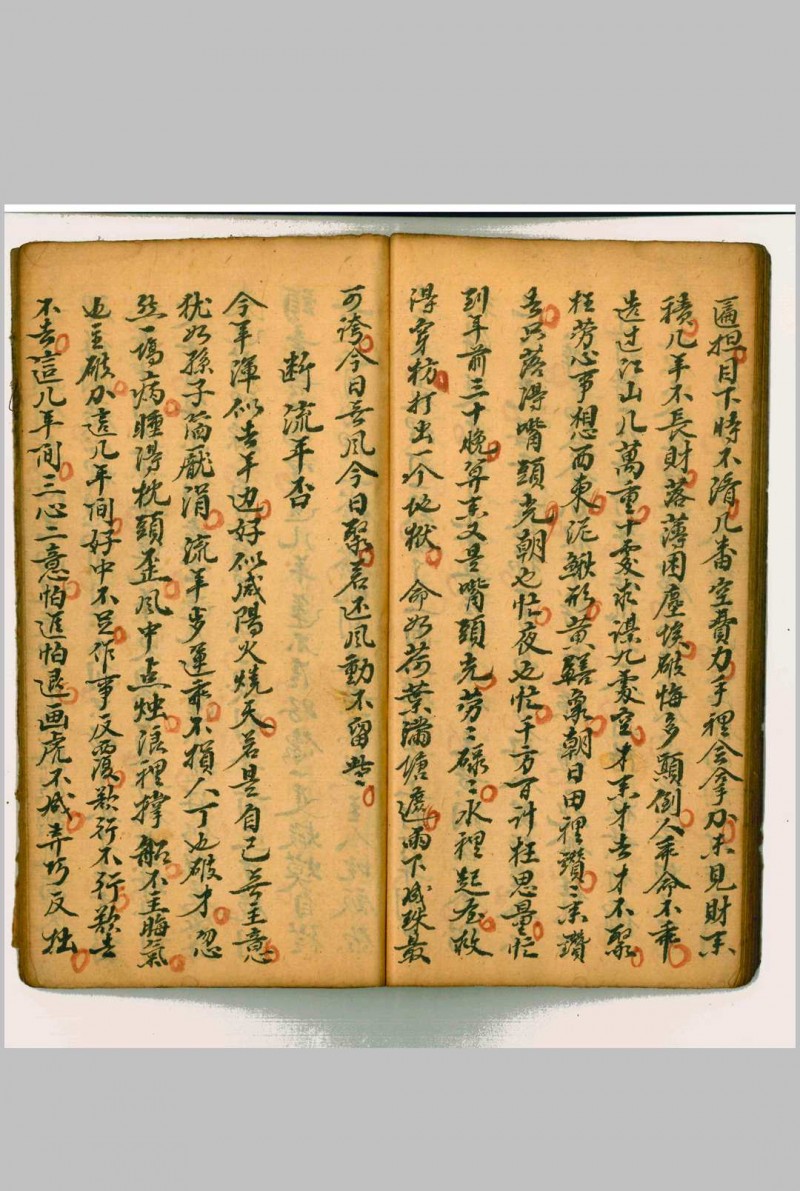 匾担目下時不濟几番空費力手裡会拿刀未見財来
積几年不長財落薄困塵埃破悔多顛倒人乖命不乖
走过江山几萬重十處求謀九處空才来才去才不聚
枉劳心事想西東泥鰍形黄鱔象朝日田裡鑽鑽来鑽
去只落得嘴頭光朝也忙夜也忙千方百計枉思量忙
到年前三十晚算来又是嘴頭光劳劳碌碌水裡起屋
得穿枋打出一个地獄命如荷葉满塘遮雨下成珠最
可誇今日無風今日聚若还風動不留些
断流年否
今年渾似去年边好似咸陽火燒天若是自己無主意
犹如孫子筒龎涓流年步運乖不損人丁也破才忽
然一塲病睡得枕頭歪風中点烛浪裡撑船不主晦氣
也主破力這几年间好中不足作事反覆欲行不行欲去
不去這几年间三心二意怕進怕退画虎不成弄巧反拙